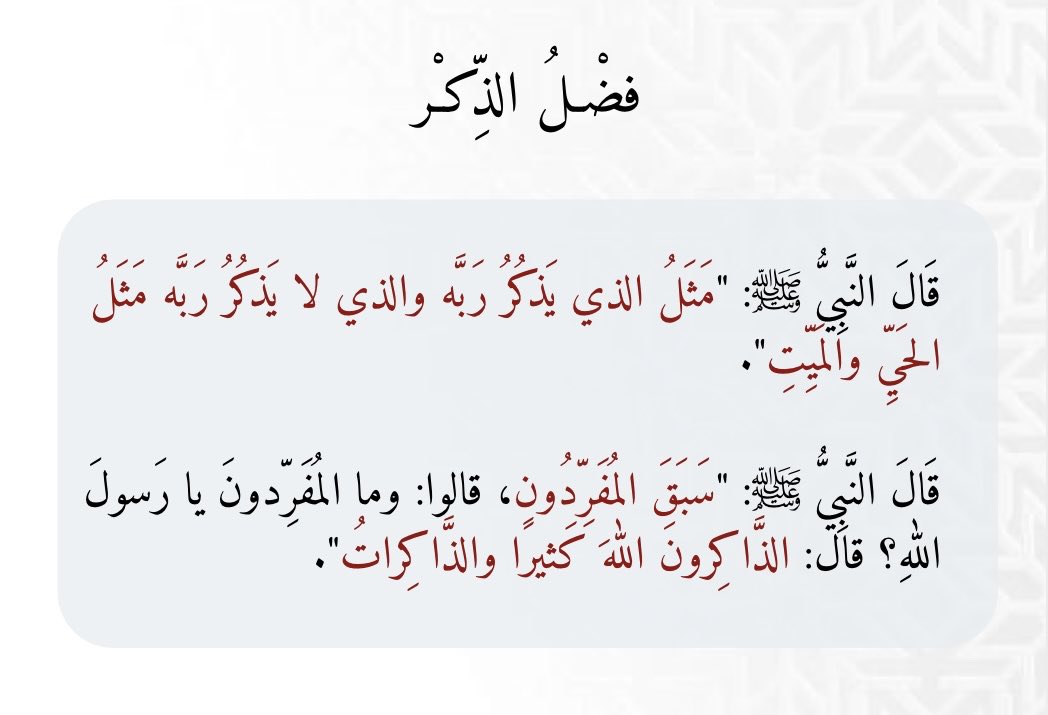 فضْلُ الذِّكْر
قَالَ النَّبِيُّ ﷺ: "مَثَلُ الذي يَذكُرُ رَبَّه والذي لا يَذكُرُ رَبَّه مَثَلُ
الحَيِّ والمَيِّتِ".
قَالَ النَّبِيُّ ﷺ: "سَبَقَ المُفَرِّدُون، قالوا: وما المُفَرِّدونَ يا رَسولَ
اللهِ؟ قال: الذَّاكِرونَ اللهَ كَثيرًا والذَّاكِراتُ".